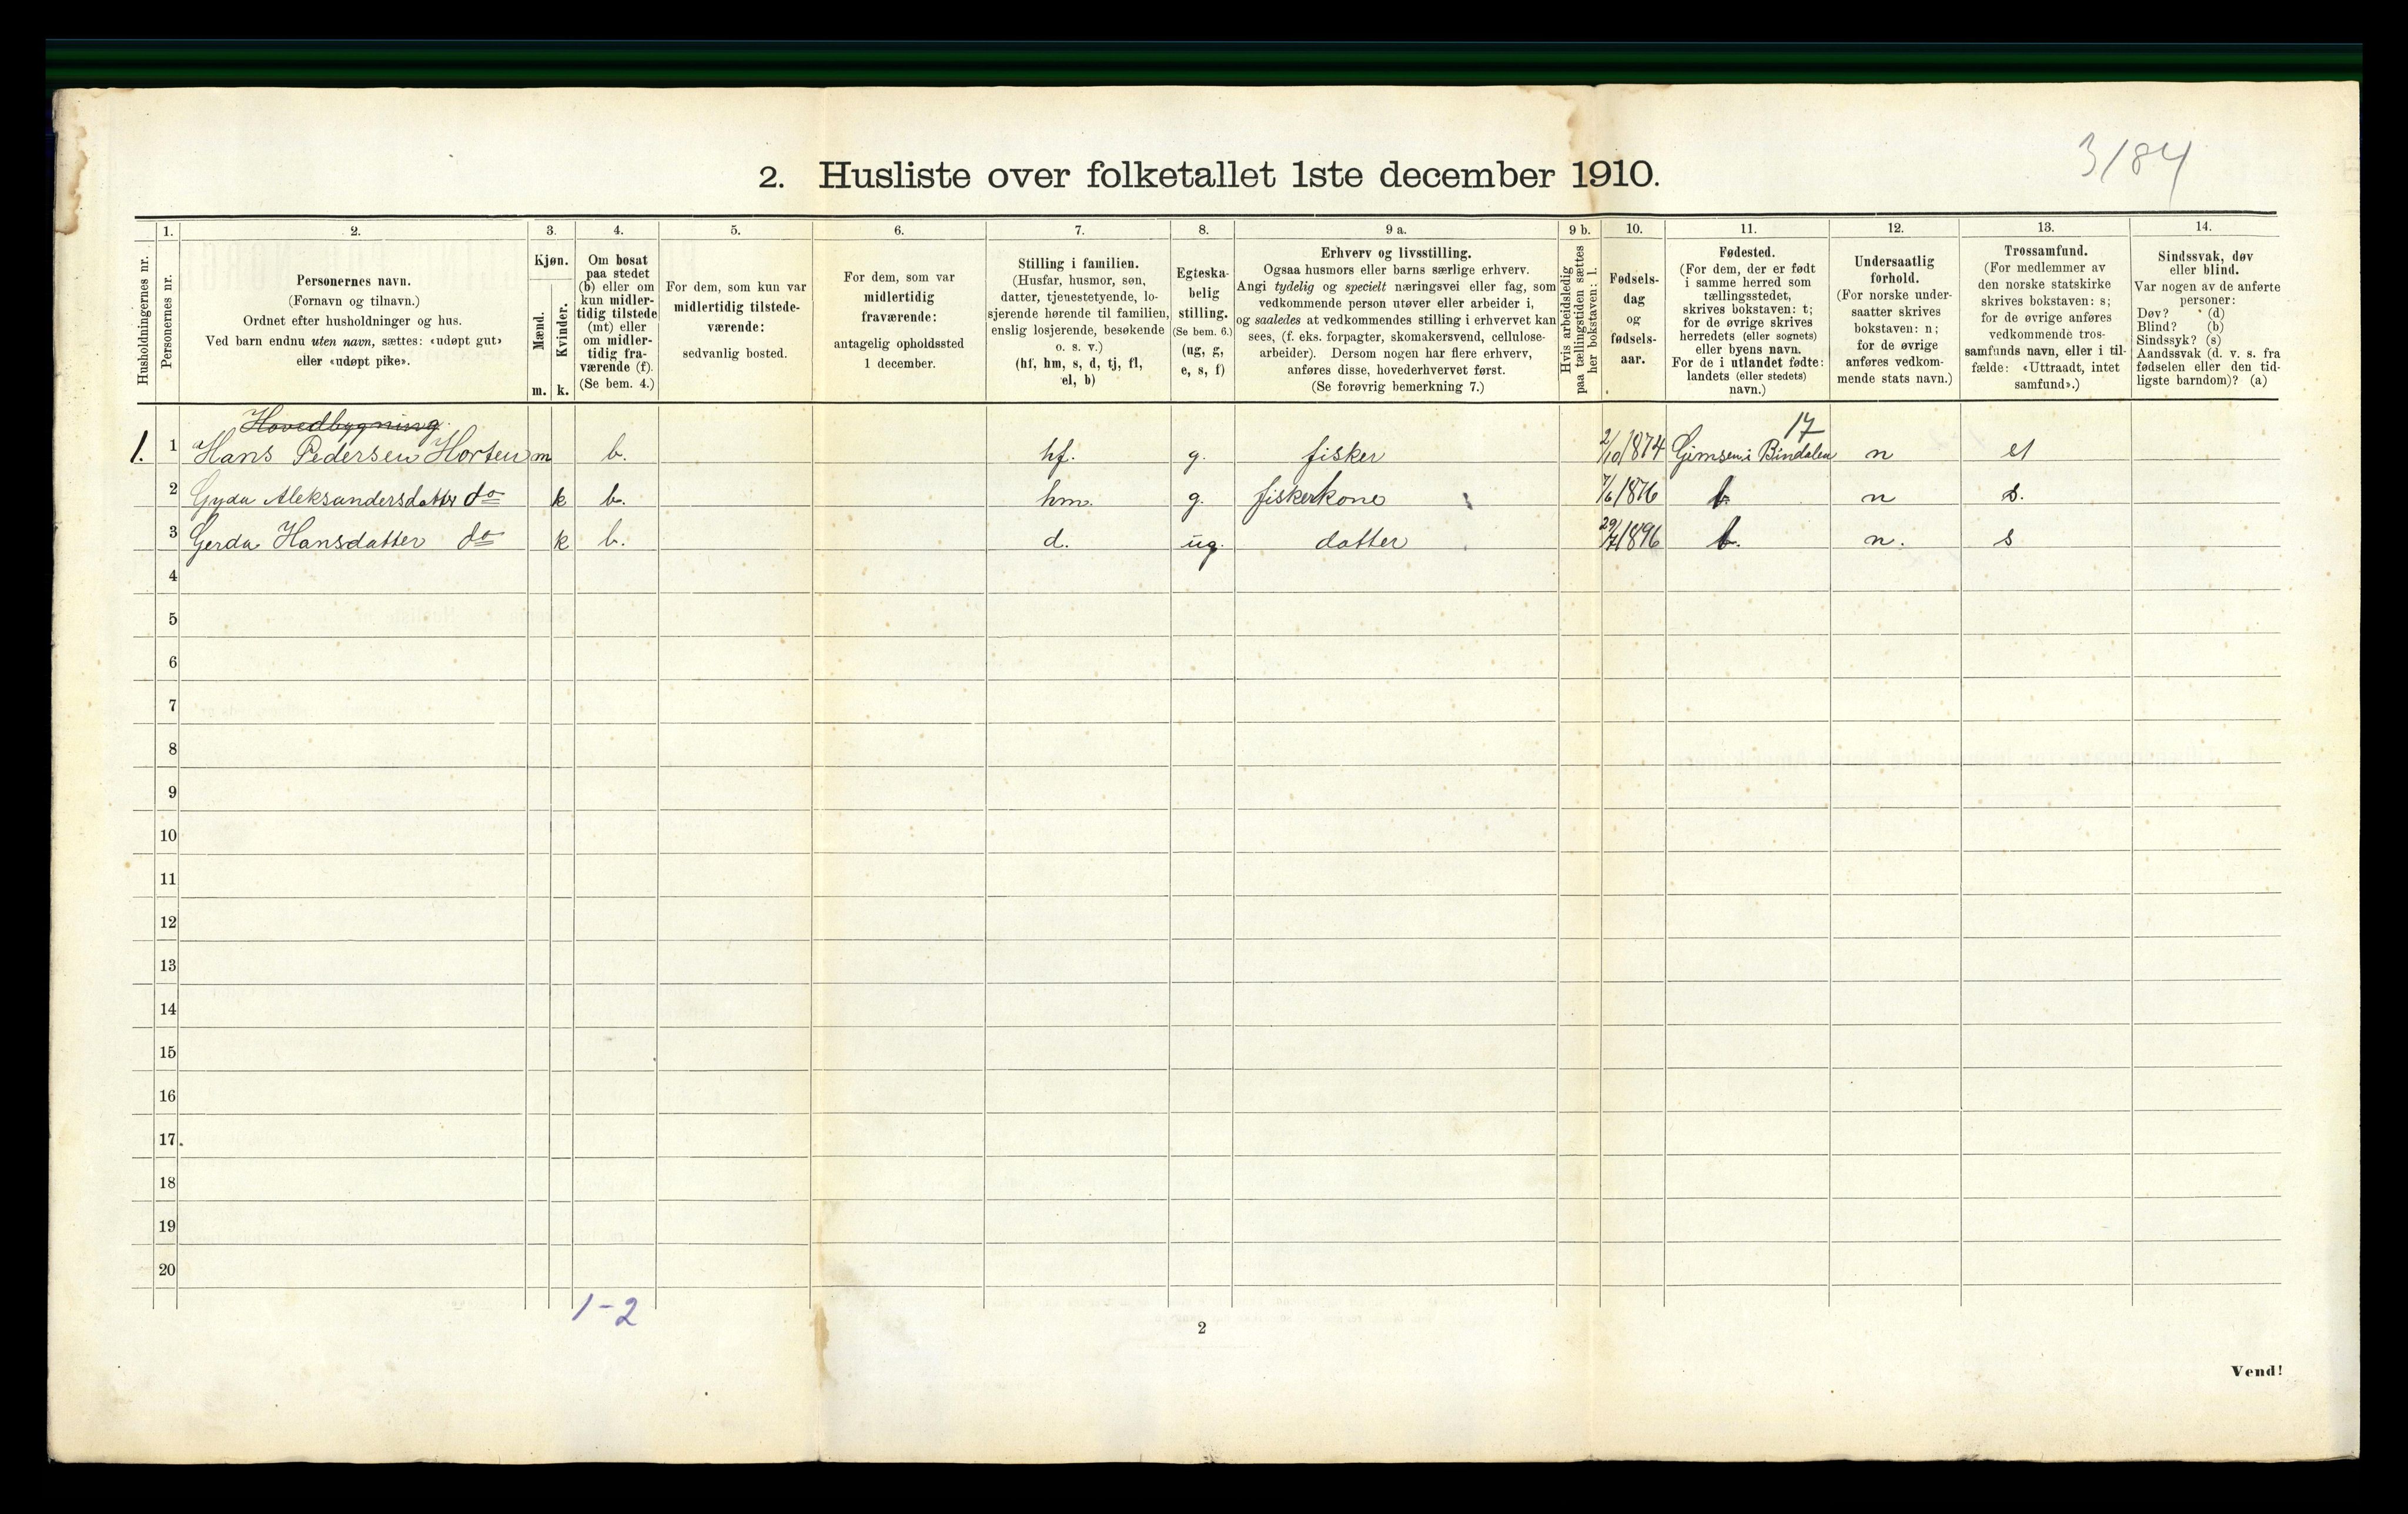 3/84
2. Husliste over folketallet 1ste december 1910.
Husholdningernes nr.
1.
Personernes nr.
2.
Personernes navn.
(Fornavn og tilnavn.)
Ordnet efter husholdninger og hus.
Ved barn endnu uten navn, sættes: «udøpt gut»
eller «udøpt pike».
3.
Kjøn.
Mænd.
Kvinder.
m. k.
4.
Om bosat
paa stedet
(b) eller om
kun midler-
tidig tilstede
(mt) eller
om midler-
tidig fra-
værende (f).
(Se bem. 4.)
5.
For dem, som kun var
midlertidig tilstede-
værende:
sedvanlig bosted.
6.
For dem, som var
midlertidig
fraværende:
antagelig opholdssted
1 december.
7.
Stilling i familien.
(Husfar, husmor, søn,
datter, tjenestetyende, lo-
sjerende hørende til familien,
enslig losjerende, besøkende
o. s. v.)
(hf, hm, s, d, tj, fl,
el, b)
8.
Egteska-
belig
stilling.
(Se bem. 6.)
(ug, g,
e, s, f)
9 a.
Erhverv og livsstilling.
Ogsaa husmors eller barns særlige erhverv.
Angi tydelig og specielt næringsvei eller fag, som
vedkommende person utøver eller arbeider i,
og saaledes at vedkommendes stilling i erhvervet kan
sees, (f. eks. forpagter, skomakersvend, cellulose-
arbeider). Dersom nogen har flere erhverv,
anføres disse, hovederhvervet først.
(Se forøvrig bemerkning 7.)
9 b.
Hvis arbeidsledig
paa tællingstiden sættes
her bokstaven: l.
10.
Fødsels-
dag
og
fødsels-
aar.
11.
Fødested.
(For dem, der er født
i samme herred som
tællingsstedet,
skrives bokstaven: t;
for de øvrige skrives
herredets (eller sognets)
eller byens navn.
For de i utlandet fødte:
landets (eller stedets)
navn.)
12.
Undersaatlig
forhold.
(For norske under-
saatter skrives
bokstaven: n;
for de øvrige
anføres vedkom-
mende stats navn.)
13.
Trossamfund.
(For medlemmer av
den norske statskirke
skrives bokstaven: s;
for de øvrige anføres
vedkommende tros-
samfunds navn, eller i til-
fælde: «Uttraadt, intet
samfund».)
14.
Sindssvak, døv
eller blind.
Var nogen av de anførte
personer:
Døv? (d)
Blind? (b)
Sindssyk? (s)
Aandssvak (d. v. s. fra
fødselen eller den tid-
ligste barndom)? (a)
Hovedbygning
17
1. 1 Hans Pedersen Horten m b. hf. g. fisker 2/10 1874 Gimsen i Bindalen n
2 Gyda Aleksandersdatter do k b. hm. g. fiskerkone 7/6 1876 n s.
3 Gerda Hansdatter do k b. d. ug. datter 29/7 1896 n. s
4
5
6
7
8
9
10
11
12
13
14
15
16
17
18
19
20
1-2
2
Vend!